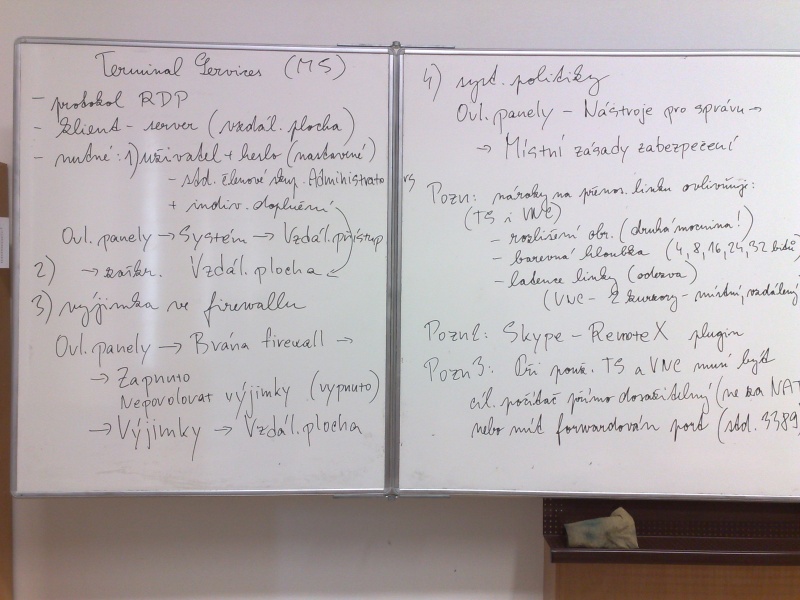 Terminal Services (MS)
- protokol RDP
- klient - server (vzdál. plocha)
- nutné: 1) uživatel + heslo (nastavené)
- std. členové skup. Administrato
rs
+ indiv. doplnění
Ovl. panely → Systém → Vzdál. přístup
2) → zaškr. Vzdál. plocha
3) výjimka ve firewallu
Ovl. panely → Brána firewall →
→ Zapnuto
Nepovolovat výjimky (vypnuto)
→ Výjimky → Vzdál. plocha
4) syst. politiky
Ovl. panely - Nástroje pro správu →
→ Místní zásady zabezpečení
Pozn: nároky na přenos. linku ovlivňují:
(TS i VNC)
- rozlišení obr. (druhá mocnina!)
- barevná hloubka (4, 8, 16, 24, 32 bitů)
- latence linky (odezva)
(VNC - 2 kurzory - místní, vzdálený
Pozn2: Skype - RemoteX plugin
Pozn3: Při použ. TS a VNC musí být
cíl. počítač přímo dosažitelný (ne za NAT
nebo mít forwardován port (std. 3389